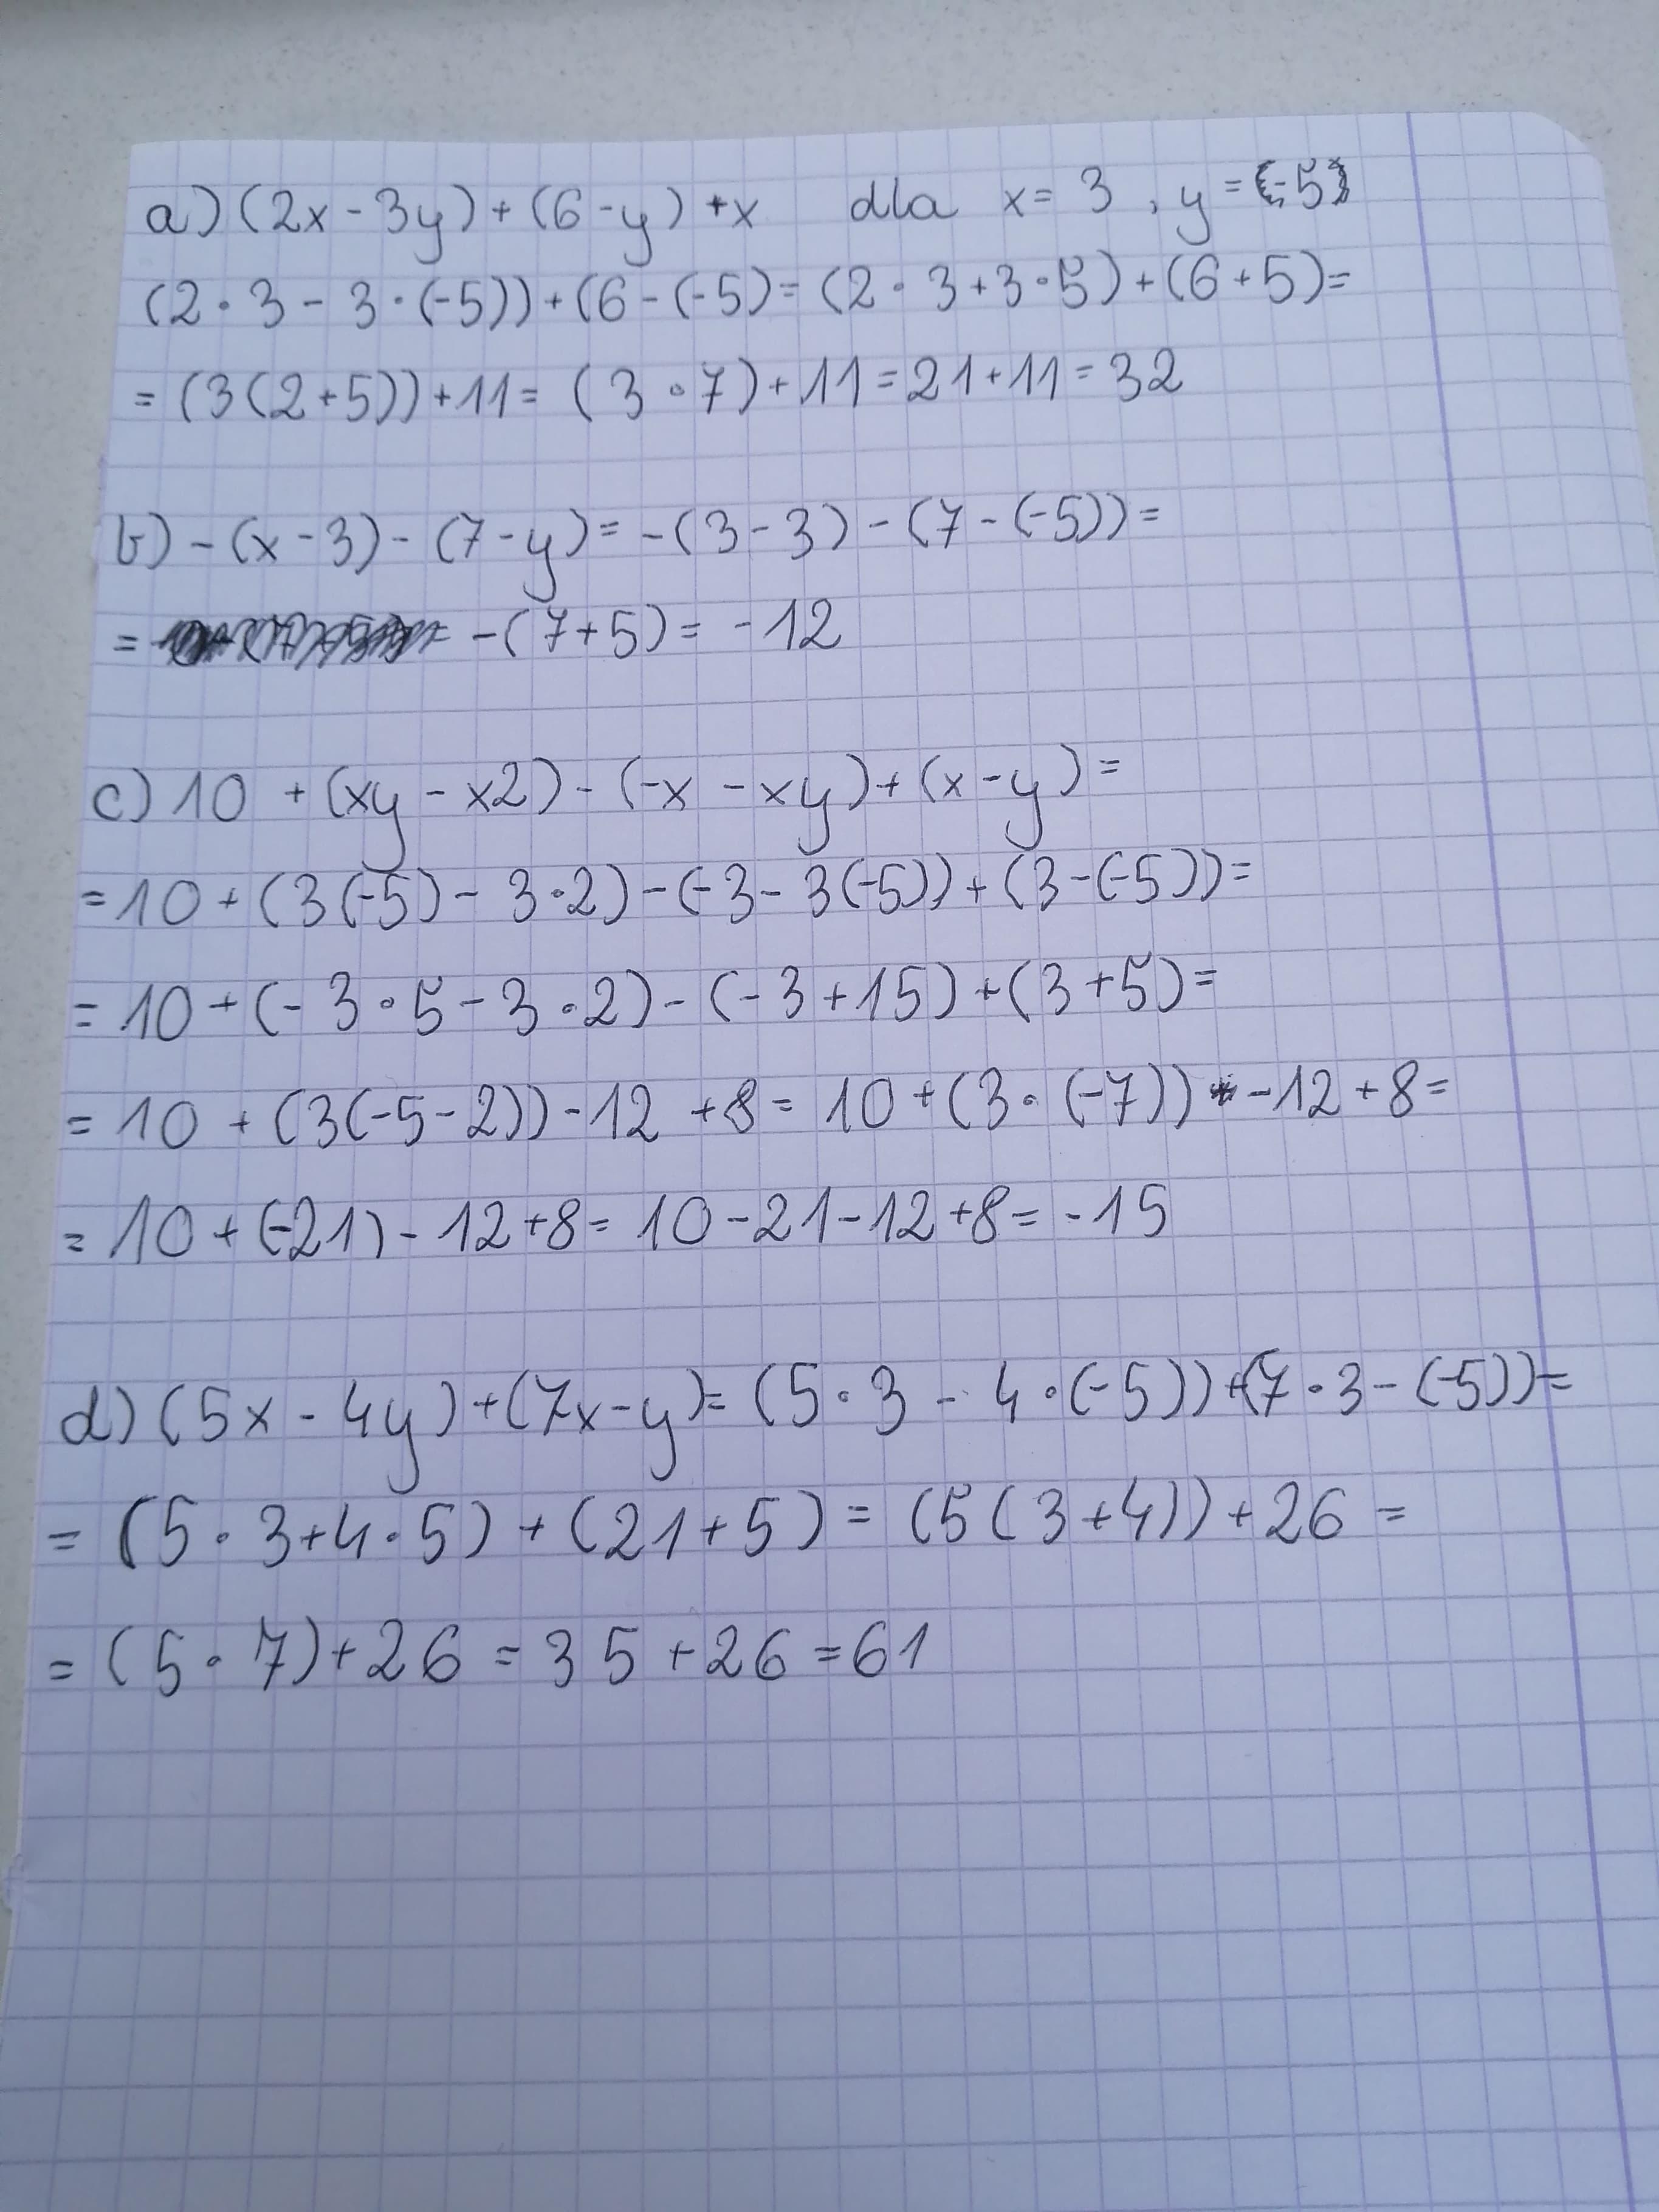 a) (2x - 3y) + (6 - y) + x dla x = 3 , y = (-5)
(2 · 3 - 3 · (-5)) + (6 - (-5) = (2 · 3 + 3 · 5) + (6 + 5) =
= (3 (2 + 5)) + 11 = (3 · 7) + 11 = 21 + 11 = 32
b) - (x - 3) - (7 - y) = - (3 - 3) - (7 - (-5)) =
= - (7 + 5) = - 12
c) 10 + (xy - x2) - (-x - xy) + (x - y) =
= 10 + (3 (-5) - 3 · 2) - (-3 - 3 (-5)) + (3 - (-5)) =
= 10 + (- 3 · 5 - 3 · 2) - (- 3 + 15) + (3 + 5) =
= 10 + (3 (-5 - 2)) - 12 + 8 = 10 + (3 · (-7)) - 12 + 8 =
= 10 + (-21) - 12 + 8 = 10 - 21 - 12 + 8 = - 15
d) (5x - 4y) + (7x - y) = (5 · 3 - 4 · (-5)) + (7 · 3 - (-5)) =
= (5 · 3 + 4 · 5) + (21 + 5) = (5 (3 + 4)) + 26 =
= (5 · 7) + 26 = 35 + 26 = 61